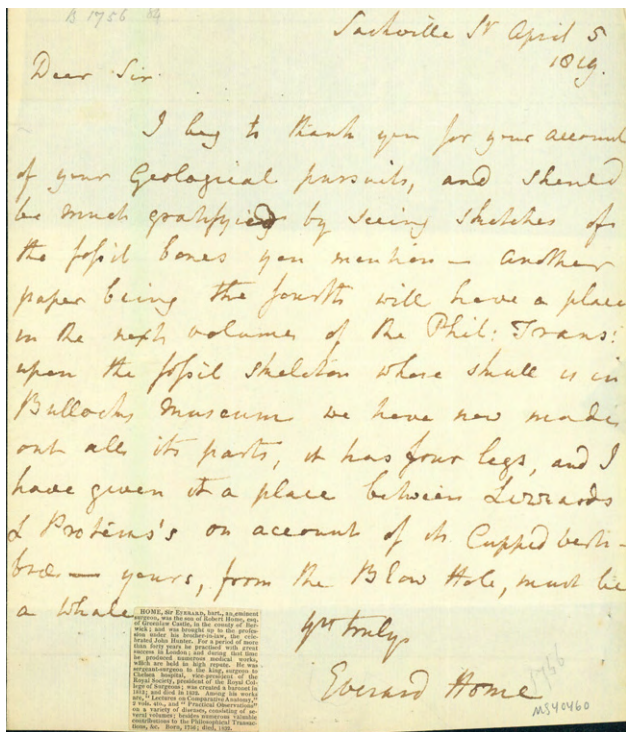 B 1756
Sackville St April 5
1819.
Dear Sir
I beg to thank you for your account
of your Geological pursuits, and should
be much gratifyied by seeing sketches of
the fossil bones you mention — another
paper being the fourth will have a place
in the next volume of the Phil: Trans:
upon the fossil skeleton whose skull is in
Bullocks Museum we have now made
out all its parts, it has four legs, and I
have given it a place between Lizzards
& Proteus's on account of its Cupped verte-
bræ — yours, from the Blow Hole, must be
a whale
yrs truly
Everard Home
HOME, Sir EVERARD, bart., an eminent
surgeon, was the son of Robert Home, esq.
of Greenlaw Castle, in the county of Ber-
wick; and was brought up to the profes-
sion under his brother-in-law, the cele-
brated John Hunter. For a period of more
than forty years he practised with great
success in London; and during that time
he produced numerous medical works,
which are held in high repute. He was
sergeant-surgeon to the king, surgeon to
Chelsea hospital, vice-president of the
Royal Society, president of the Royal Col-
lege of Surgeons; was created a baronet in
1813; and died in 1832. Among his works
are, "Lectures on Comparative Anatomy,"
2 vols. 4to., and "Practical Observations"
on a variety of diseases, consisting of se-
veral volumes; besides numerous valuable
contributions to the Philosophical Transac-
tions, &c. Born, 1756; died, 1832.
1756
MS40460